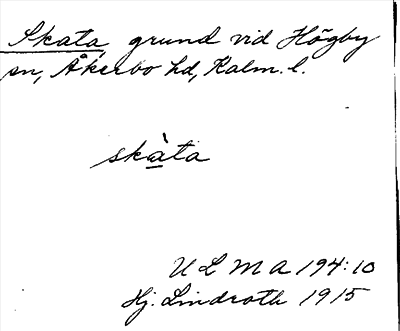 Skata, grund vid Högby
sn, Åkerbo hd, Kalm. l.
skàta
ULMA 194:10
Hj. Lindroth 1915